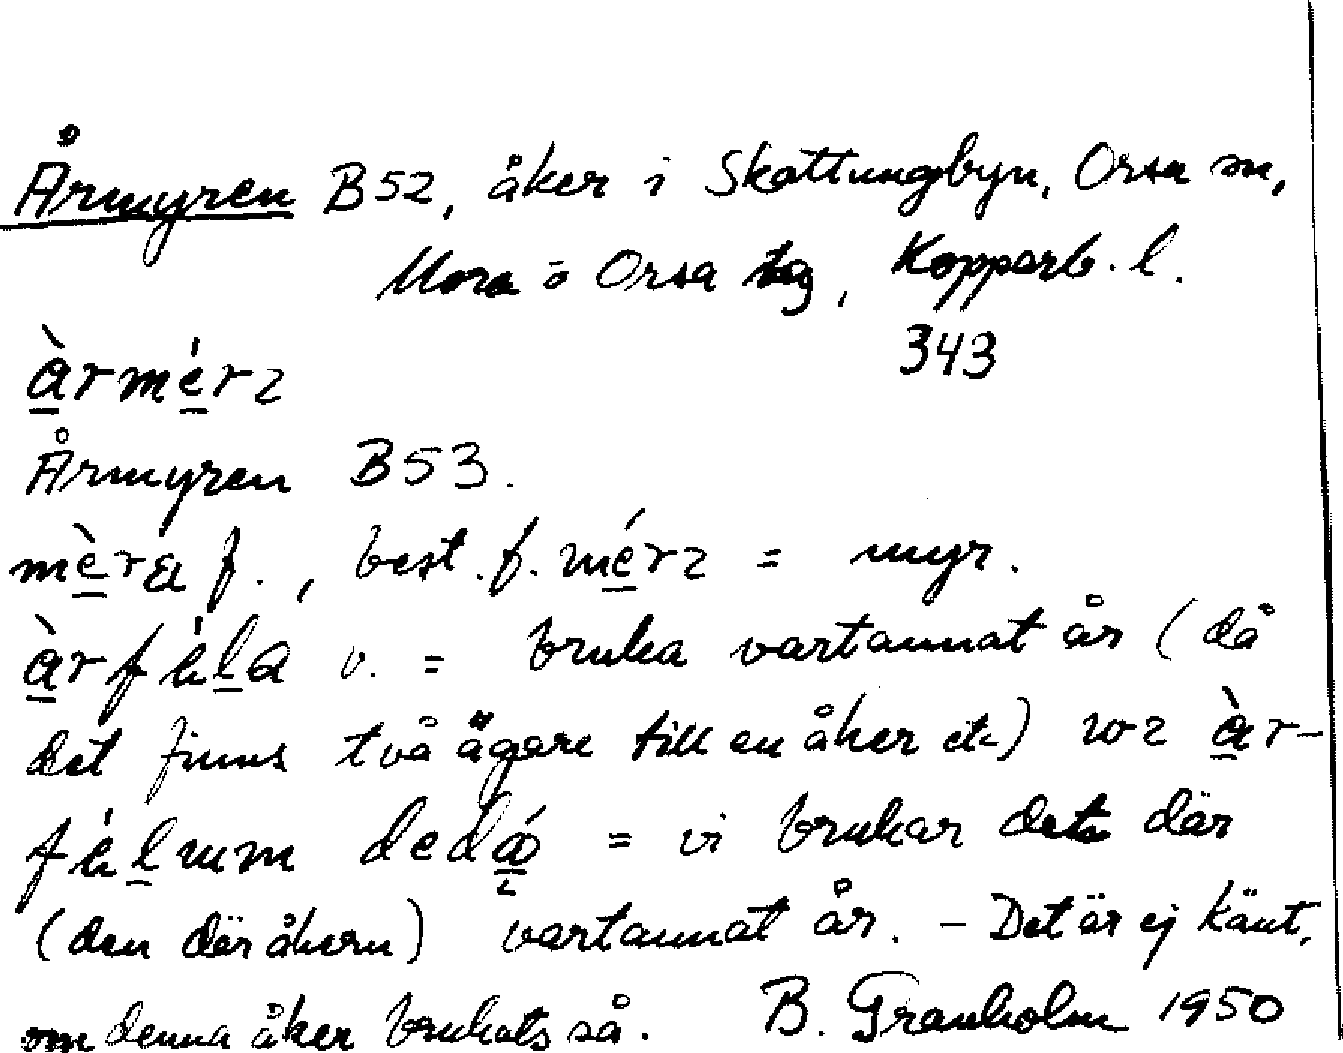 Årmyren B52, åker i Skattungbyn, Orsa sn,
Mora o Orsa tg, Kopparb. l.
343
àrmérz
Årmyren B53.
mèra f., best. f. mérz = myr.
v. = bruka vartannat år (då
det finns två ägare till en åker etc) àr-
= vi brukar det där
(den där åkern) vartannat år. – Det är ej känt,
om denna åker brukats så. B. Granholm 1950